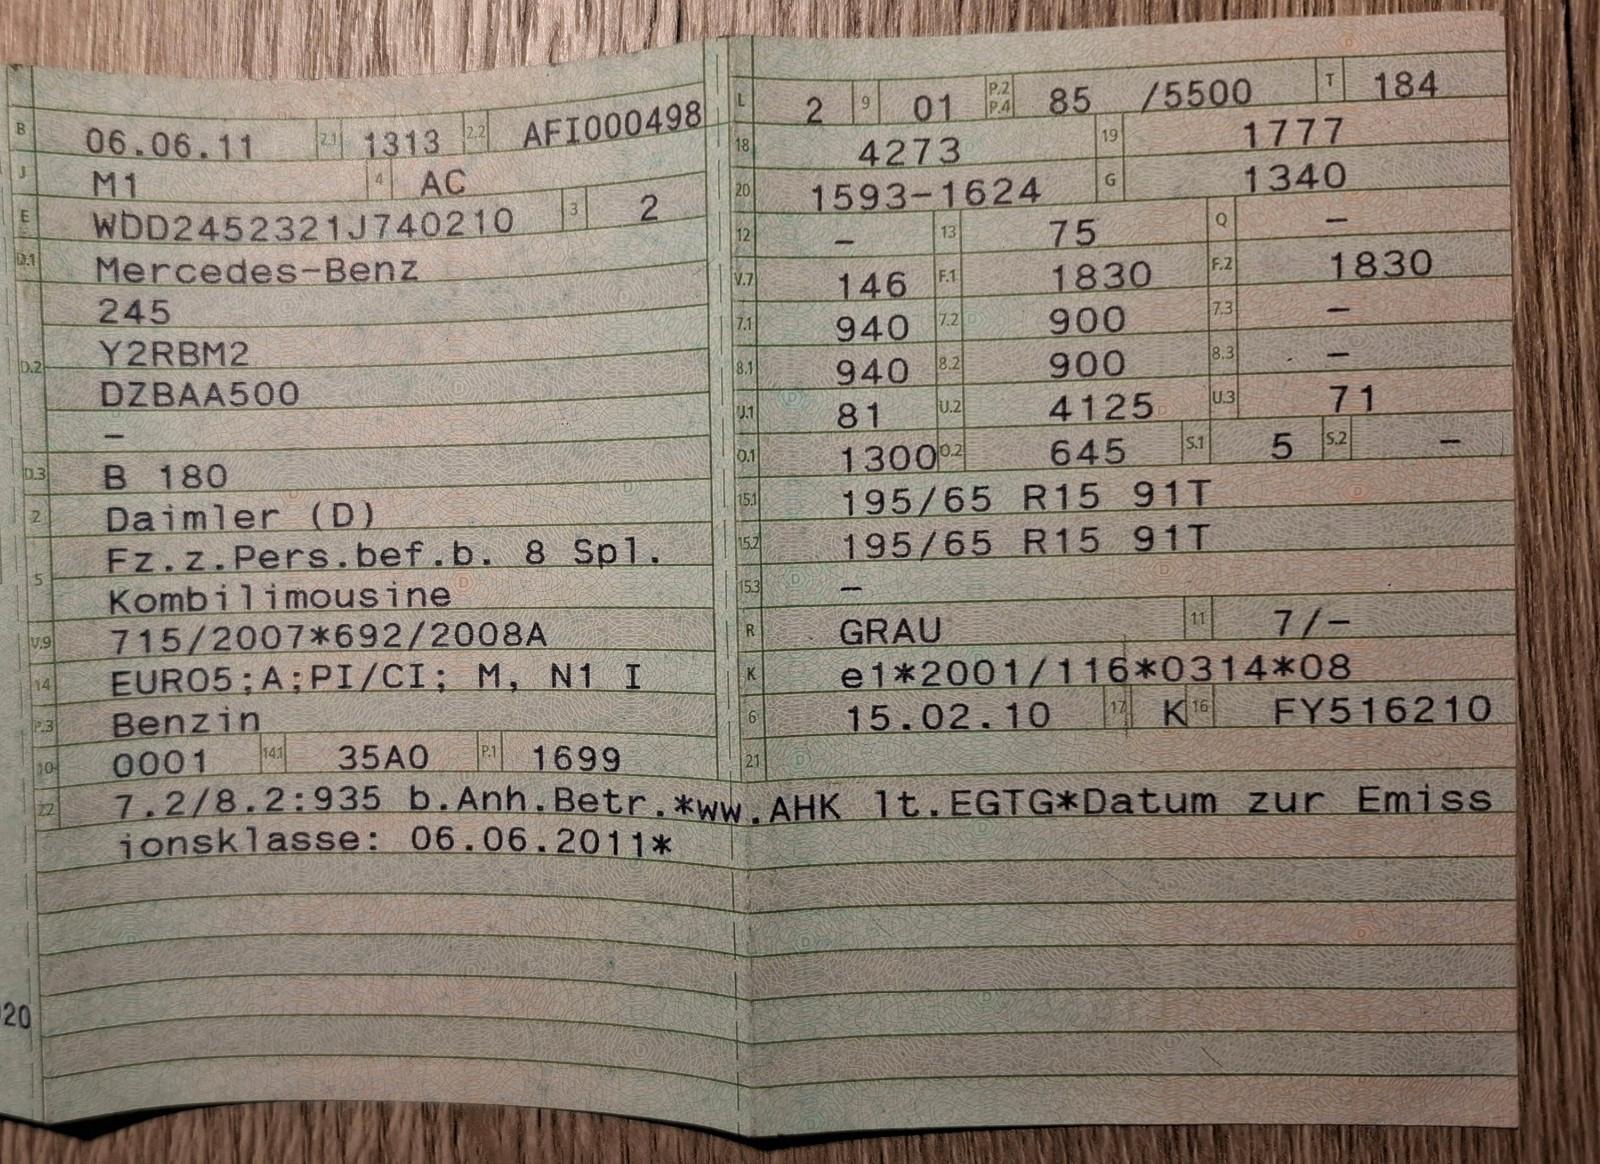 B 06.06.11 2.1 1313 2.2 AFI000498
J M1 4 AC
E WDD2452321J740210 3 2
D.1 Mercedes-Benz
245
D.2 Y2RBM2
DZBAA500
–
D.3 B 180
2 Daimler (D)
5 Fz.z.Pers.bef.b. 8 Spl.
Kombilimousine
V.9 715/2007*692/2008A
14 EURO5;A;PI/CI; M, N1 I
P.3 Benzin
10 0001 14.1 35A0 P.1 1699
L 2 9 01 P.2 P.4 85 /5500 T 184
18 4273 19 1777
20 1593-1624 G 1340
12 – 13 75 Q –
V.7 146 F.1 1830 F.2 1830
7.1 940 7.2 900 7.3 –
8.1 940 8.2 900 8.3 –
U.1 81 U.2 4125 U.3 71
O.1 1300 O.2 645 S.1 5 S.2 –
15.1 195/65 R15 91T
15.2 195/65 R15 91T
15.3 –
R GRAU 11 7/–
K e1*2001/116*0314*08
6 15.02.10 17 K 16 FY516210
21
22 7.2/8.2:935 b.Anh.Betr.*ww.AHK lt.EGTG*Datum zur Emiss
ionsklasse: 06.06.2011*
20